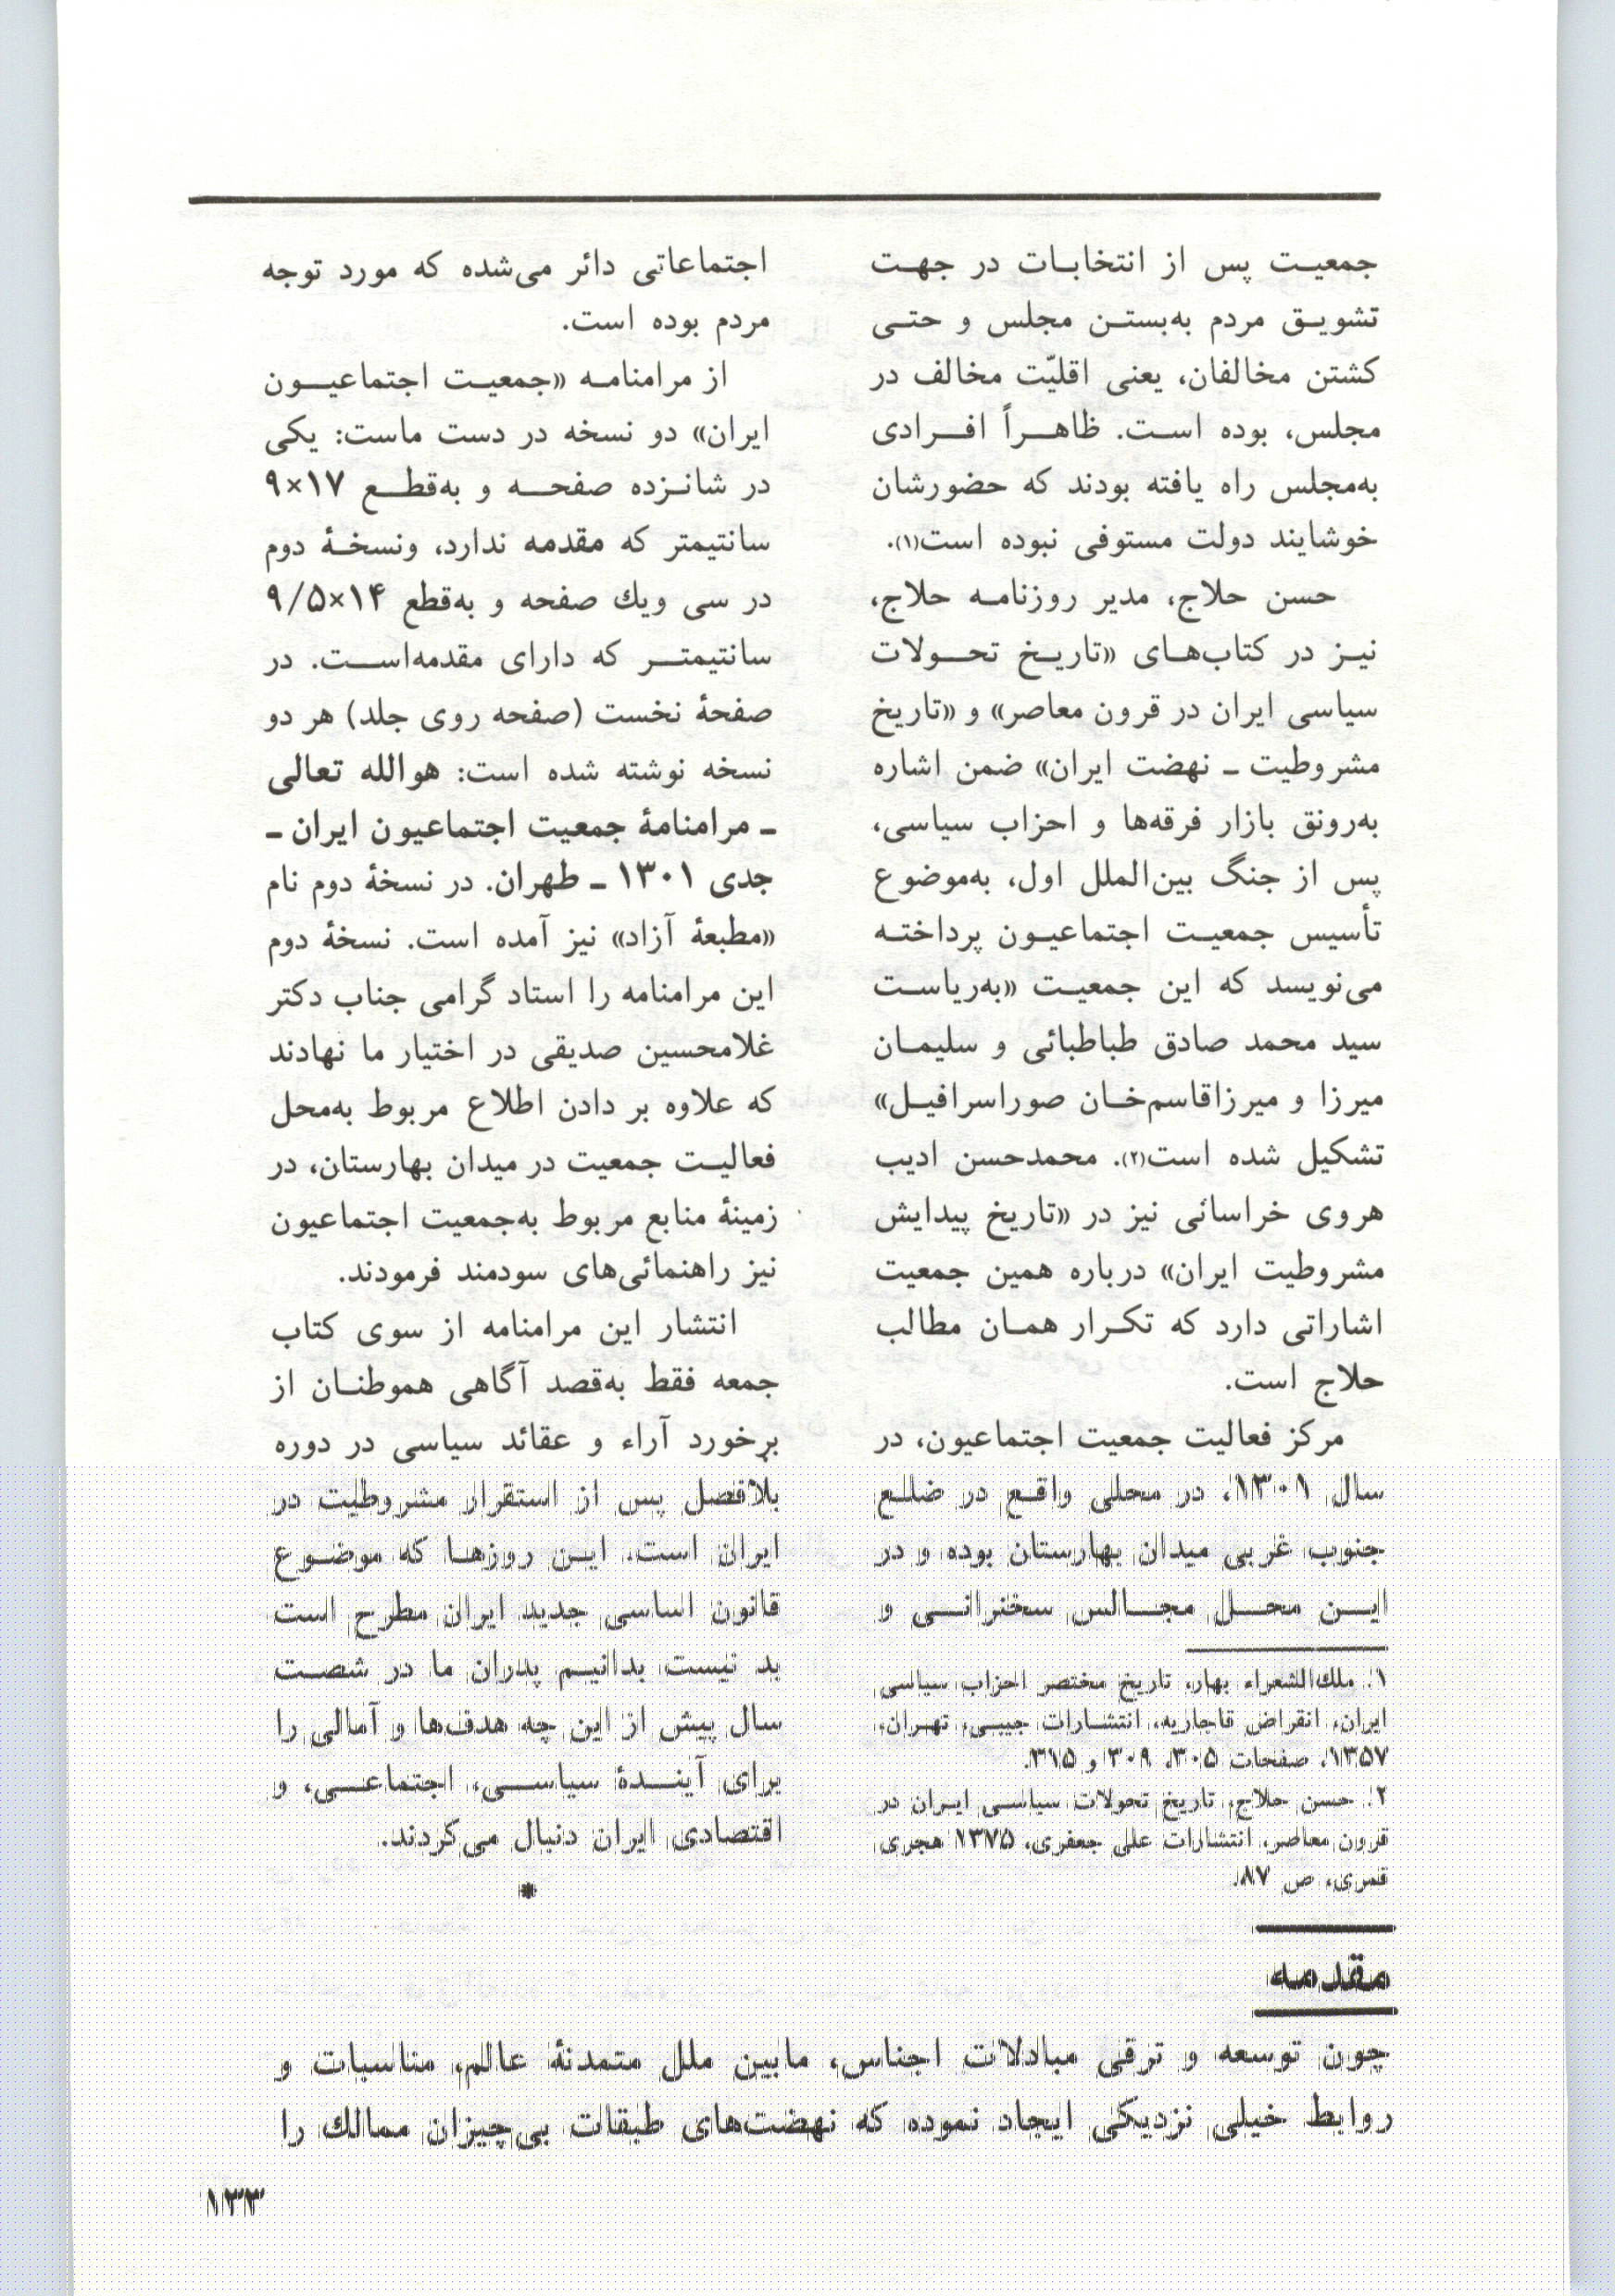 جمعیت پس از انتخابات در جهت
تشویق مردم به‌بستن مجلس و حتی
کشتن مخالفان، یعنی اقلیّت مخالف در
مجلس، بوده است. ظاهراً افرادی
به‌مجلس راه یافته بودند که حضورشان
خوشایند دولت مستوفی نبوده است(۱).
حسن حلاج، مدیر روزنامه حلاج،
نیز در کتاب‌های «تاریخ تحولات
سیاسی ایران در قرون معاصر» و «تاریخ
مشروطیت ـ نهضت ایران» ضمن اشاره
به‌رونق بازار فرقه‌ها و احزاب سیاسی،
پس از جنگ بین‌الملل اول، به‌موضوع
تأسیس جمعیت اجتماعیون پرداخته
می‌نویسد که این جمعیت «به‌ریاست
سید محمد صادق طباطبائی و سلیمان
میرزا و میرزاقاسم‌خان صوراسرافیل»
تشکیل شده است(۲). محمدحسن ادیب
هروی خراسانی نیز در «تاریخ پیدایش
مشروطیت ایران» درباره همین جمعیت
اشاراتی دارد که تکرار همان مطالب
حلاج است.
مرکز فعالیت جمعیت اجتماعیون، در
سال ۱۳۰۱، در محلی واقع در ضلع
جنوب غربی میدان بهارستان بوده و در
این محل مجالس سخنرانی و
۱. ملك‌الشعراء بهار، تاریخ مختصر احزاب سیاسی
ایران، انقراض قاجاریه، انتشارات جیبی، تهران،
۱۳۵۷، صفحات ۳۰۵، ۳۰۹ و ۳۱۵.
۲. حسن حلاج، تاریخ تحولات سیاسی ایران در
قرون معاصر، انتشارات علی جعفری، ۱۳۷۵ هجری
قمری، ص ۸۷.
اجتماعاتی دائر می‌شده که مورد توجه
مردم بوده است.
از مرامنامه «جمعیت اجتماعیون
ایران» دو نسخه در دست ماست: یکی
در شانزده صفحه و به‌قطع ۱۷×۹
سانتیمتر که مقدمه ندارد، ونسخهٔ دوم
در سی ویك صفحه و به‌قطع ۱۴×۹/۵
سانتیمتر که دارای مقدمه‌است. در
صفحهٔ نخست (صفحه روی جلد) هر دو
نسخه نوشته شده است: هوالله تعالی
ـ مرامنامهٔ جمعیت اجتماعیون ایران ـ
جدی ۱۳۰۱ ـ طهران. در نسخهٔ دوم نام
«مطبعهٔ آزاد» نیز آمده است. نسخهٔ دوم
این مرامنامه را استاد گرامی جناب دکتر
غلامحسین صدیقی در اختیار ما نهادند
که علاوه بر دادن اطلاع مربوط به‌محل
فعالیت جمعیت در میدان بهارستان، در
زمینهٔ منابع مربوط به‌جمعیت اجتماعیون
نیز راهنمائی‌های سودمند فرمودند.
انتشار این مرامنامه از سوی کتاب
جمعه فقط به‌قصد آگاهی هموطنان از
برخورد آراء و عقائد سیاسی در دوره
بلافصل پس از استقرار مشروطیت در
ایران است. این روزها که موضوع
قانون اساسی جدید ایران مطرح است
بد نیست بدانیم پدران ما در شصت
سال پیش از این چه هدف‌ها و آمالی را
برای آیندهٔ سیاسی، اجتماعی، و
اقتصادی ایران دنبال می‌کردند.
*
مقدمه
چون توسعه و ترقی مبادلات اجناس، مابین ملل متمدنهٔ عالم، مناسبات و
روابط خیلی نزدیکی ایجاد نموده که نهضت‌های طبقات بی‌چیزان ممالك را
۱۳۳